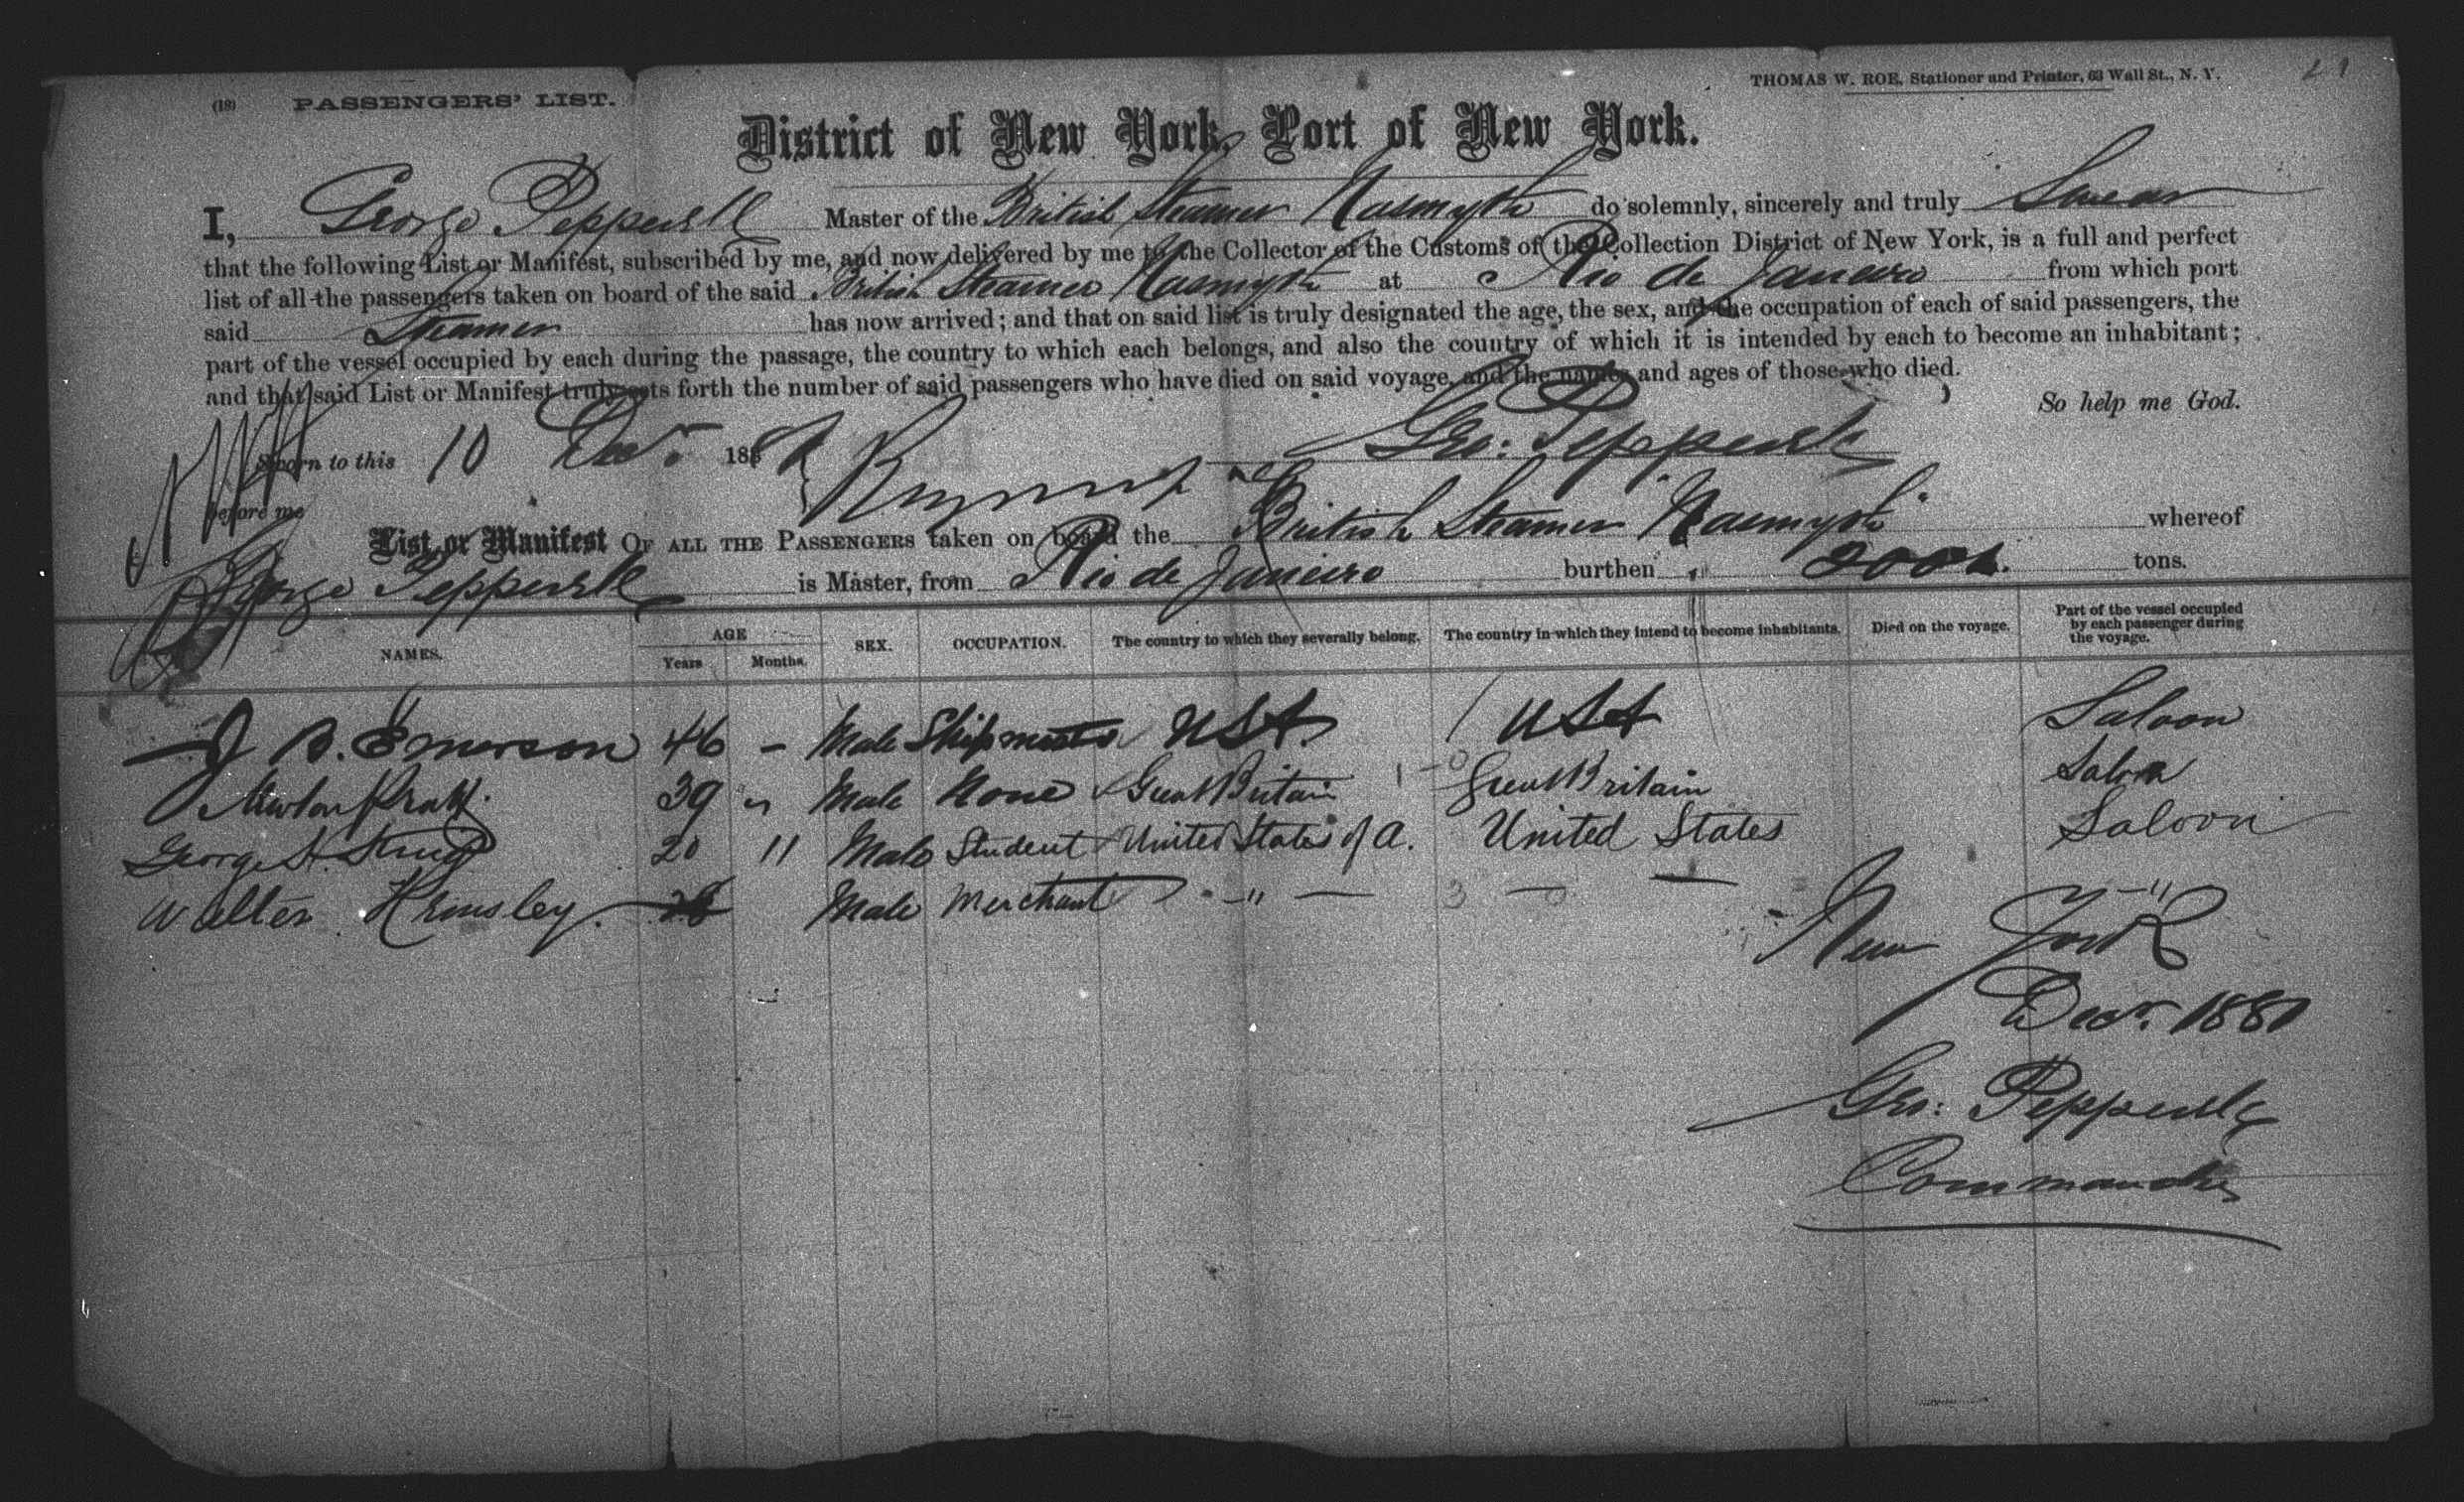 (18) PASSENGERS' LIST. THOMAS W. ROE, Stationer and Printer, 63 Wall St., N. Y. 21
District of New York, Port of New York.
I, George Pepperell Master of the British Steamer Nasmyth do solemnly, sincerely and truly Swear
that the following List or Manifest, subscribed by me, and now delivered by me to the Collector of the Customs of the Collection District of New York, is a full and perfect
list of all the passengers taken on board of the said British Steamer Nasmyth at Rio de Janeiro from which port
said Steamer has now arrived; and that on said list is truly designated the age, the sex, and the occupation of each of said passengers, the
part of the vessel occupied by each during the passage, the country to which each belongs, and also the country of which it is intended by each to become an inhabitant;
and that said List or Manifest truly sets forth the number of said passengers who have died on said voyage, and the names and ages of those who died.
So help me God.
Sworn to this 10 Decr 1881 Geo: Pepperell
before me
List or Manifest OF ALL THE PASSENGERS taken on board the British Steamer "Nasmyth" whereof
George Pepperell is Master, from Rio de Janeiro burthen 2002. tons.
NAMES. AGE Years Months. SEX. OCCUPATION. The country to which they severally belong. The country in which they intend to become inhabitants. Died on the voyage. Part of the vessel occupied by each passenger during the voyage.
J B. Emerson 46 – Male Shipmaster USA. USA Saloon
Newton Pratt. 39 " Male None Great Britain Great Britain Saloon
George H. 20 11 Male Student United States of A. United States Saloon
Walter 28 Male Merchant – " – – – – " –
New York
Decr. 1881
Geo: Pepperell
Commander